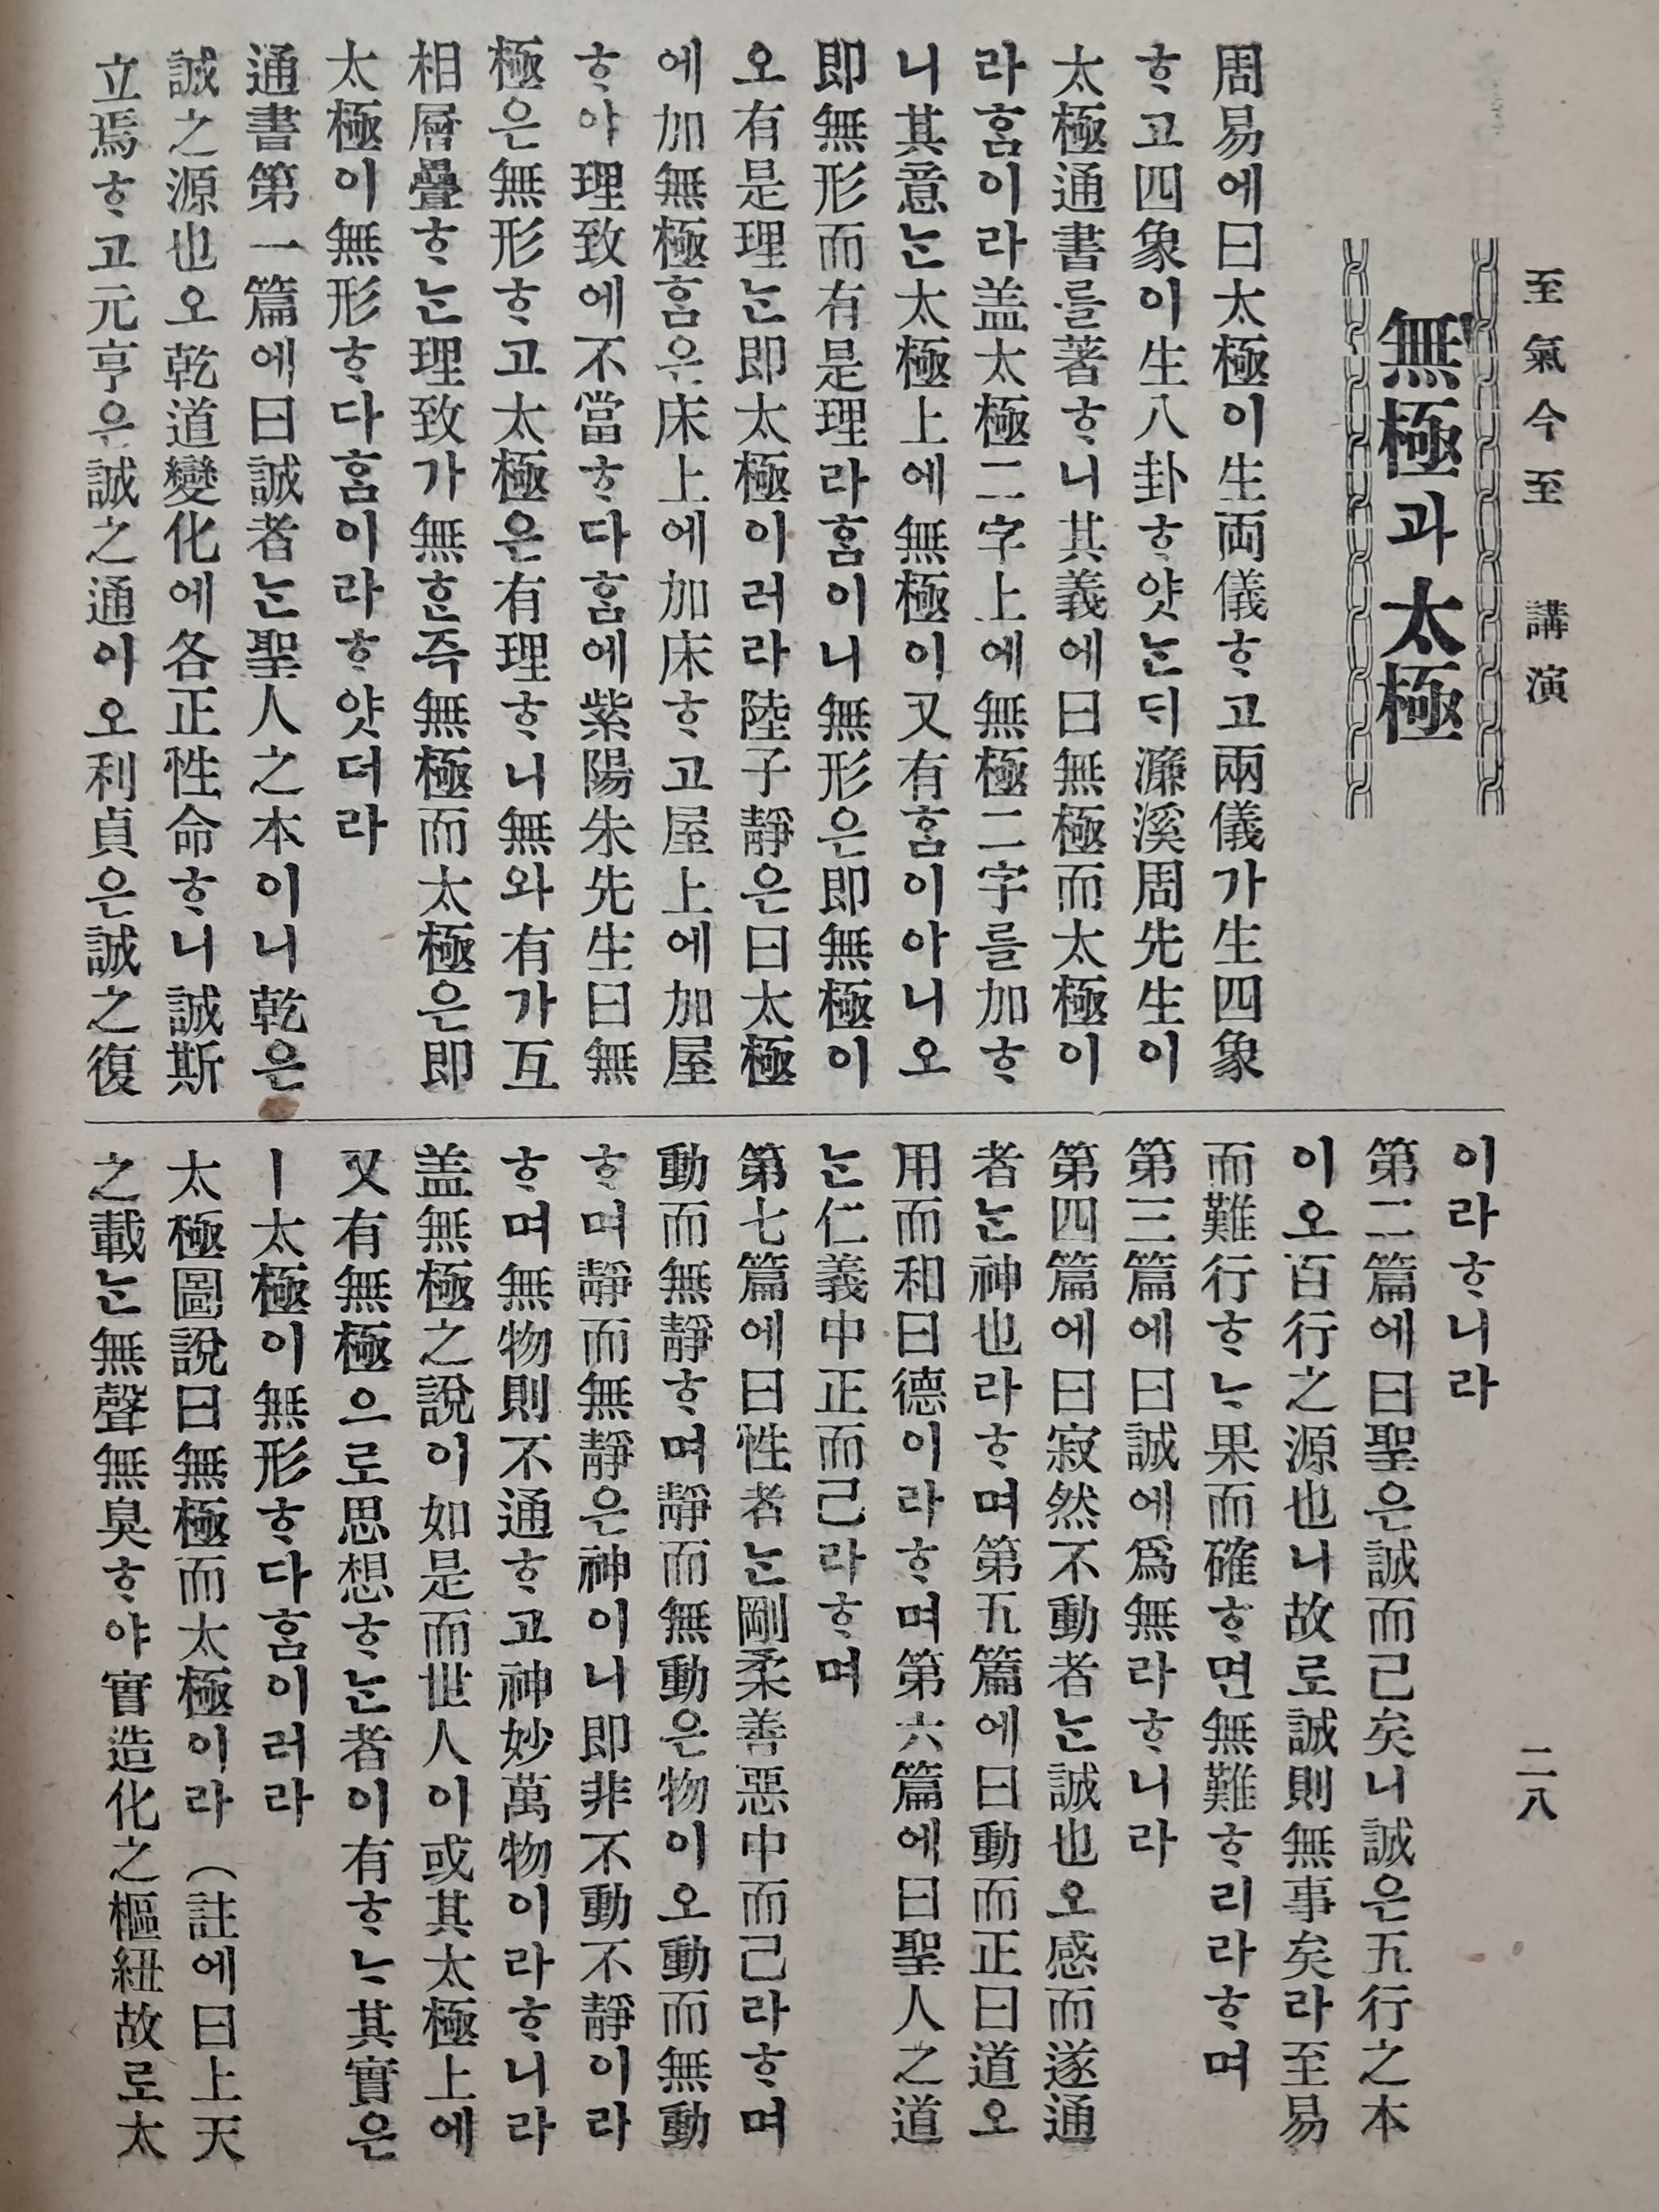 至氣今至 講演
無極과太極
周易에曰太極이生両儀ᄒᆞ고兩儀가生四象
ᄒᆞ고四象이生八卦ᄒᆞ얏ᄂᆞᆫ듸濂溪周先生이
太極通書를著ᄒᆞ니其義에曰無極而太極이
라홈이라盖太極二字上에無極二字를加ᄒᆞ
니其意ᄂᆞᆫ太極上에無極이又有홈이아니오
即無形而有是理라홈이니無形은即無極이
오有是理ᄂᆞᆫ即太極이러라陸子靜은曰太極
에加無極홈은床上에加床ᄒᆞ고屋上에加屋
ᄒᆞ야理致에不當ᄒᆞ다홈에紫陽朱先生曰無
極은無形ᄒᆞ고太極은有理ᄒᆞ니無와有가互
相層疊ᄒᆞᄂᆞᆫ理致가無ᄒᆞᆫ즉無極而太極은即
太極이無形ᄒᆞ다홈이라ᄒᆞ얏더라
通書第一篇에曰誠者ᄂᆞᆫ聖人之本이니乾은
誠之源也오乾道變化에各正性命ᄒᆞ니誠斯
立焉ᄒᆞ고元亨은誠之通이오利貞은誠之復
이라ᄒᆞ니라
第二篇에曰聖은誠而己矣니誠은五行之本
이오百行之源也니故로誠則無事矣라至易
而難行ᄒᆞᄂᆞ果而確ᄒᆞ면無難ᄒᆞ리라ᄒᆞ며
第三篇에曰誠에爲無라ᄒᆞ니라
第四篇에曰寂然不動者ᄂᆞᆫ誠也오感而遂通
者ᄂᆞᆫ神也라ᄒᆞ며第五篇에曰動而正曰道오
用而和曰德이라ᄒᆞ며第六篇에曰聖人之道
ᄂᆞᆫ仁義中正而己라ᄒᆞ며
第七篇에曰性者ᄂᆞᆫ剛柔善惡中而己라ᄒᆞ며
動而無靜ᄒᆞ며靜而無動은物이오動而無動
ᄒᆞ며靜而無靜은神이니即非不動不靜이라
ᄒᆞ며無物則不通ᄒᆞ고神妙萬物이라ᄒᆞ니라
盖無極之說이如是而世人이或其太極上에
又有無極으로思想ᄒᆞᄂᆞᆫ者이有ᄒᆞᄂᆞ其實은
ㅣ太極이無形ᄒᆞ다홈이러라
太極圖說曰無極而太極이라(註에曰上天
之載ᄂᆞᆫ無聲無臭ᄒᆞ야實造化之樞紐故로太
二八